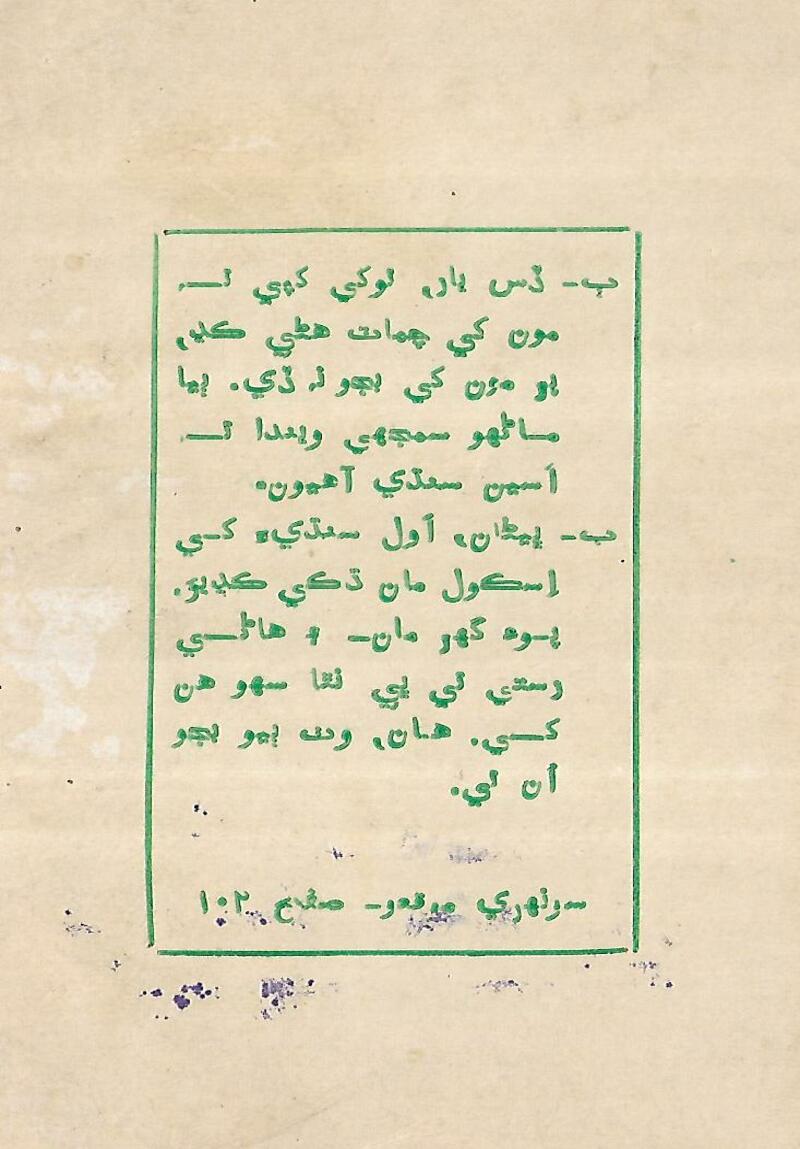 ب- ڏس يار، توکي کپي تـ
مون کي چماٽ هڻي ڪڍ،
پر مون کي ڀڃو نہ ڏي. ٻيا
ماڻهو سمجهي ويندا تـ
اَسين سنڌي آهيون.
ب- ڀيڻان، اُول سنڌيءَ کي
اِسڪول مان ڌڪي ڪڍيو.
پوءِ گهر مان- ۽ هاڻي
رستي تي پي نٿا سهو هن
کي. هان، وٺ ٻيو ڀڃو
اُن تي.
سونهري موقعو- صفحہ ۱۰۲